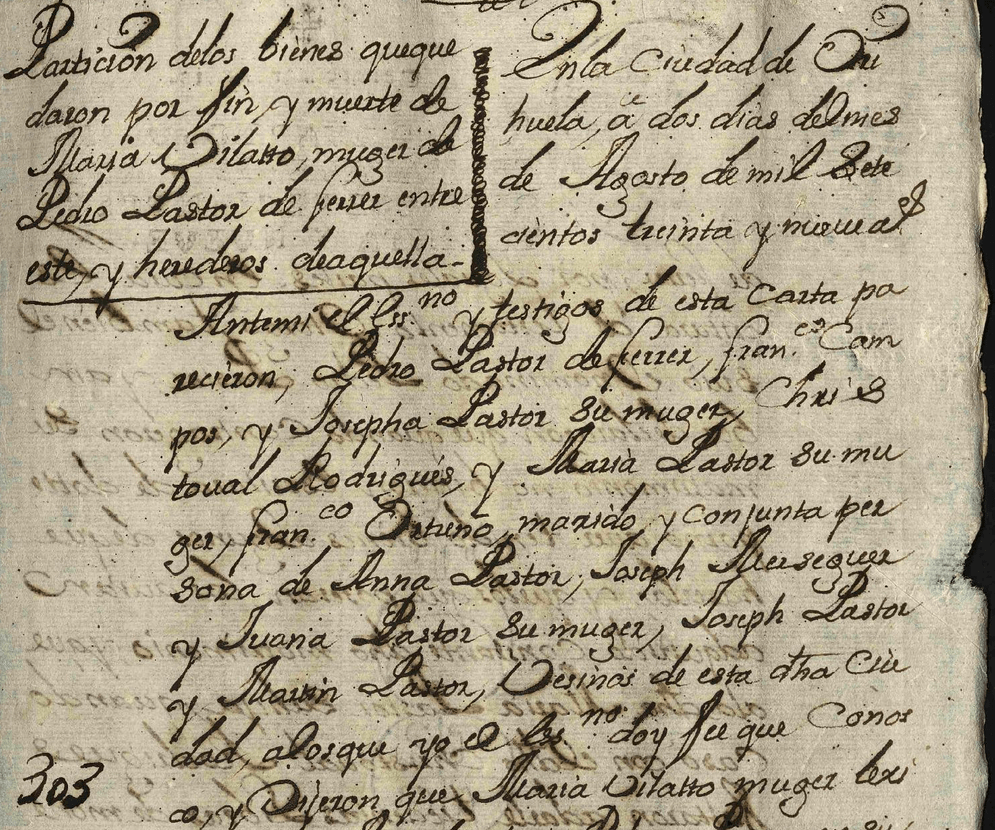 Particion delos bienes queque
daron por fin, y muerte de
Maria Vilatto, muger de
Pedro Pastor de ferrer entre
este, y herederos deaquella.
Enla Ciudad de Ori
huela, â dos dias del mes
de Agosto de mil Sete
cientos treinta y nueve a.s
Antemi el Ess.no y testigos de esta Carta pa
recieron, Pedro Pastor de ferrer, fran.co Cam
pos, y Josepha Pastor su muger, Chris
toval Rodrigues, y Maria Pastor su mu
ger, fran.co Ortuño, marido, y conjunta per
sona de Anna Pastor, Joseph Merseguer
y Juana Pastor su muger, Joseph Pastor
y Martin Pastor, Vesinos de esta dha Ciu
dad, alosque yo el Ess.no doy fee que Conos
co, y Dijeron que Maria Vilatto muger
303